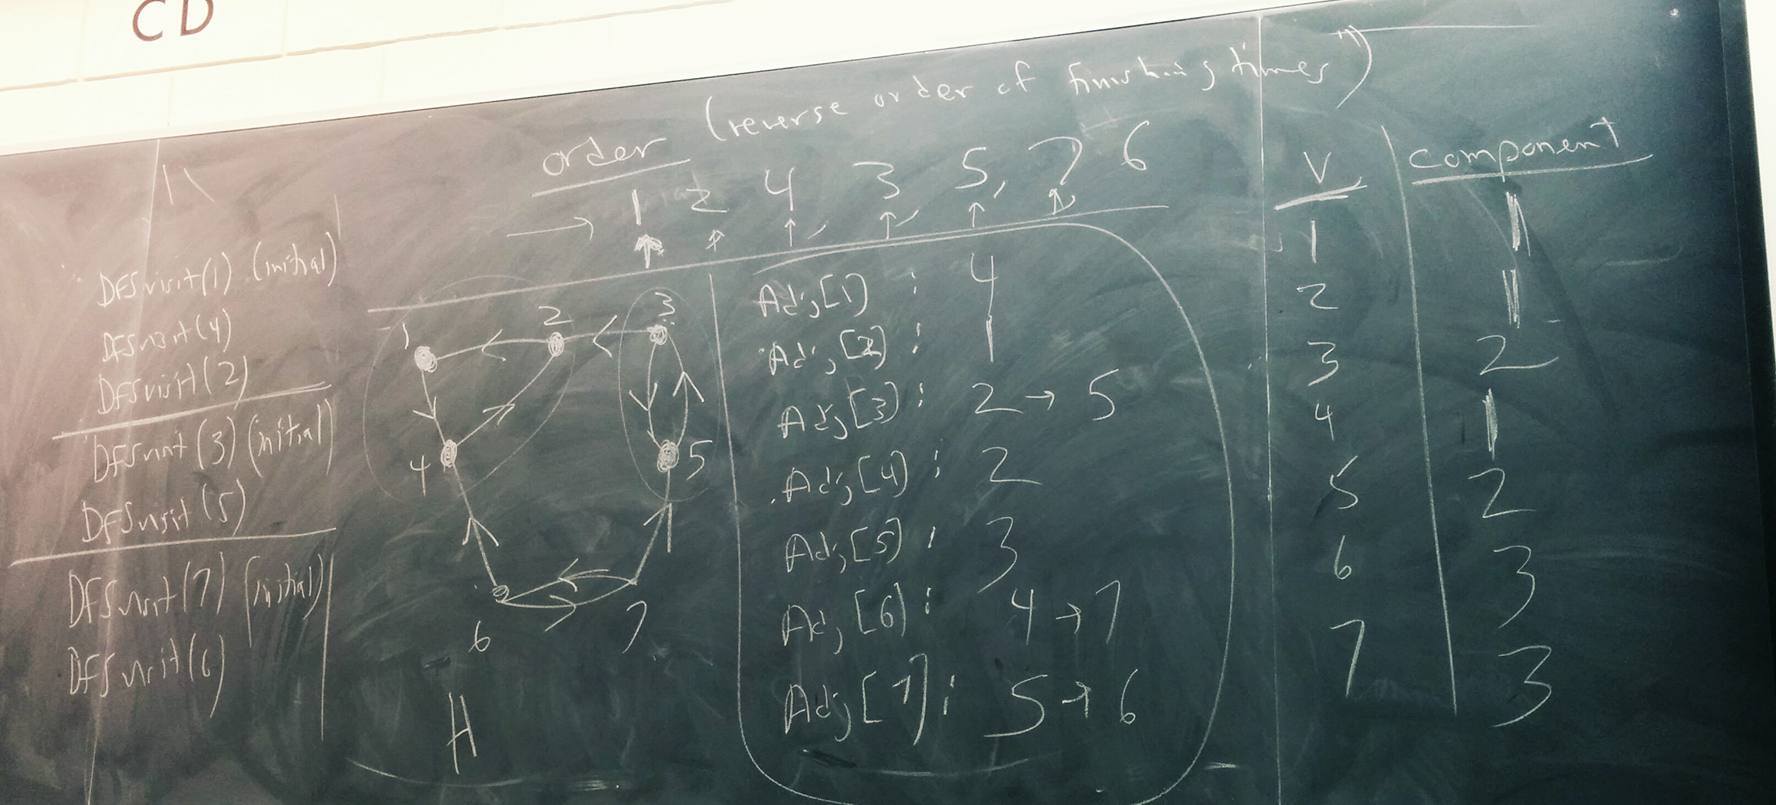 CD
order (reverse order of finishing times)
→ 1 2 4 3 5, 7 6
DFSvisit(1) (initial)
DFSvisit(4)
DFSvisit(2)
DFSvisit(3) (initial)
DFSvisit(5)
DFSvisit(7) (initial)
DFSvisit(6)
1 2 3
4 5
6 7
H
Adj[1] : 4
Adj[2] : 1
Adj[3] : 2 → 5
Adj[4] : 2
Adj[5] : 3
Adj[6] : 4 → 7
Adj[7] : 5 → 6
V component
1 1
2 1
3 2
4 1
5 2
6 3
7 3